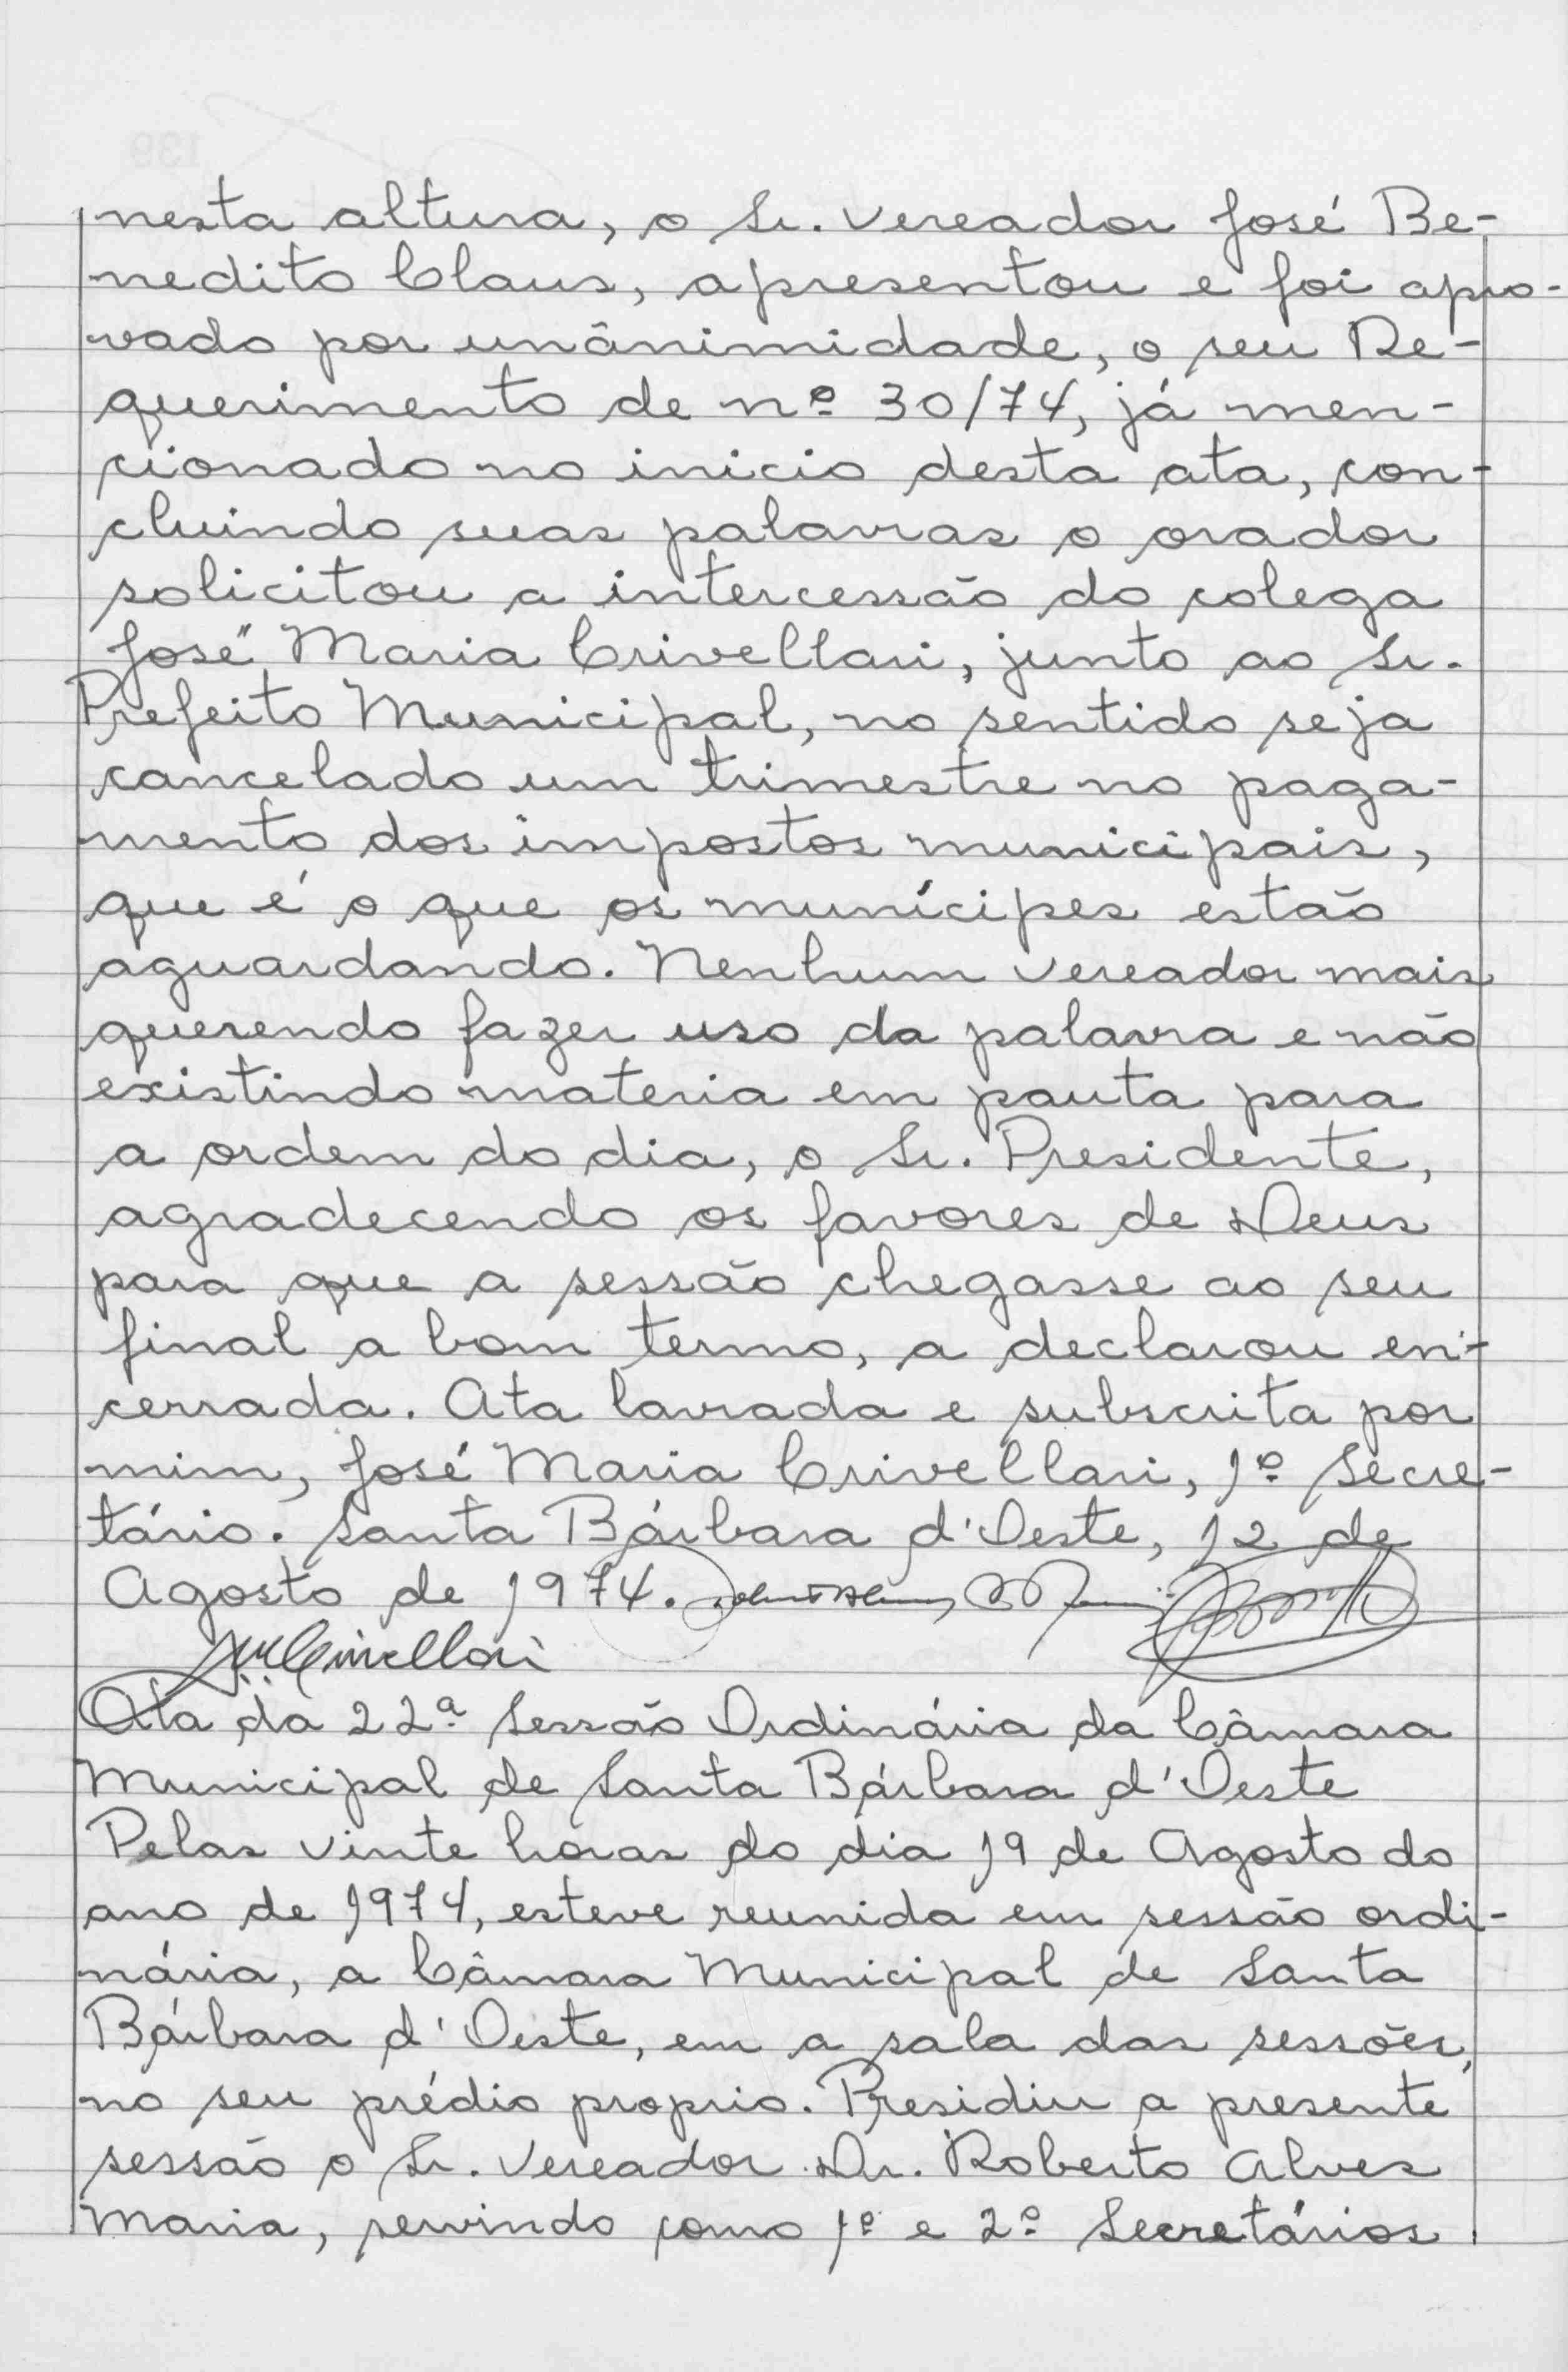 nesta altura, o Sr. Vereador José Be-
nedito Claus, apresentou e foi apro-
vado por unânimidade, o seu Re-
querimento de nº 30/74, já men-
cionado no inicio desta ata, con-
cluindo suas palavras o orador
solicitou a intercessão do colega
José Maria Crivellari, junto ao Sr.
Prefeito Municipal, no sentido seja
cancelado um trimestre no paga-
mento dos impostos municipais,
que é o que os munícipes estão
aguardando. Nenhum vereador mais
querendo fazer uso da palavra e não
existindo materia em pauta para
a ordem do dia, o Sr. Presidente,
agradecendo os favores de Deus
para que a sessão chegasse ao seu
final a bom termo, a declarou en-
cerrada. Ata lavrada e subscrita por
mim, José Maria Crivellari, 1º Secre-
tário. Santa Bárbara d'Oeste, 12 de
Agosto de 1974.
JMCrivellari
Ata da 22ª Sessão Ordinária da Câmara
Municipal de Santa Bárbara d'Oeste
Pelas vinte horas do dia 19 de Agosto do
ano de 1974, esteve reunida em sessão ordi-
nária, a Câmara Municipal de Santa
Bárbara d'Oeste, em a sala das sessões,
no seu prédio proprio. Presidiu a presente
sessão o Sr. Vereador Dr. Roberto Alves
Maria, servindo como 1º e 2º Secretários